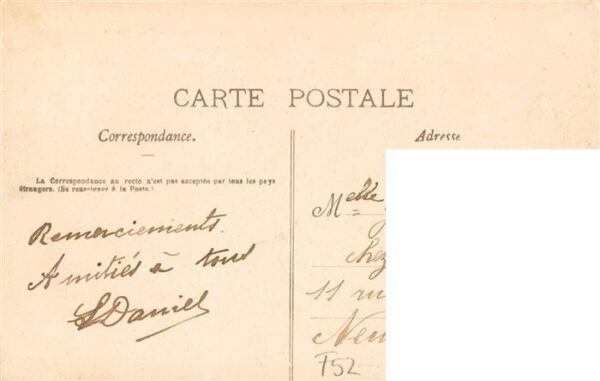 CARTE POSTALE
Correspondance.
Adresse
La Correspondance au recto n'est pas acceptée par tous les pays
étrangers. (Se renseigner à la Poste.)
Remerciements.
Amitiés à tous
LDaniel
Melle
chez
11 ru
Neu
F52